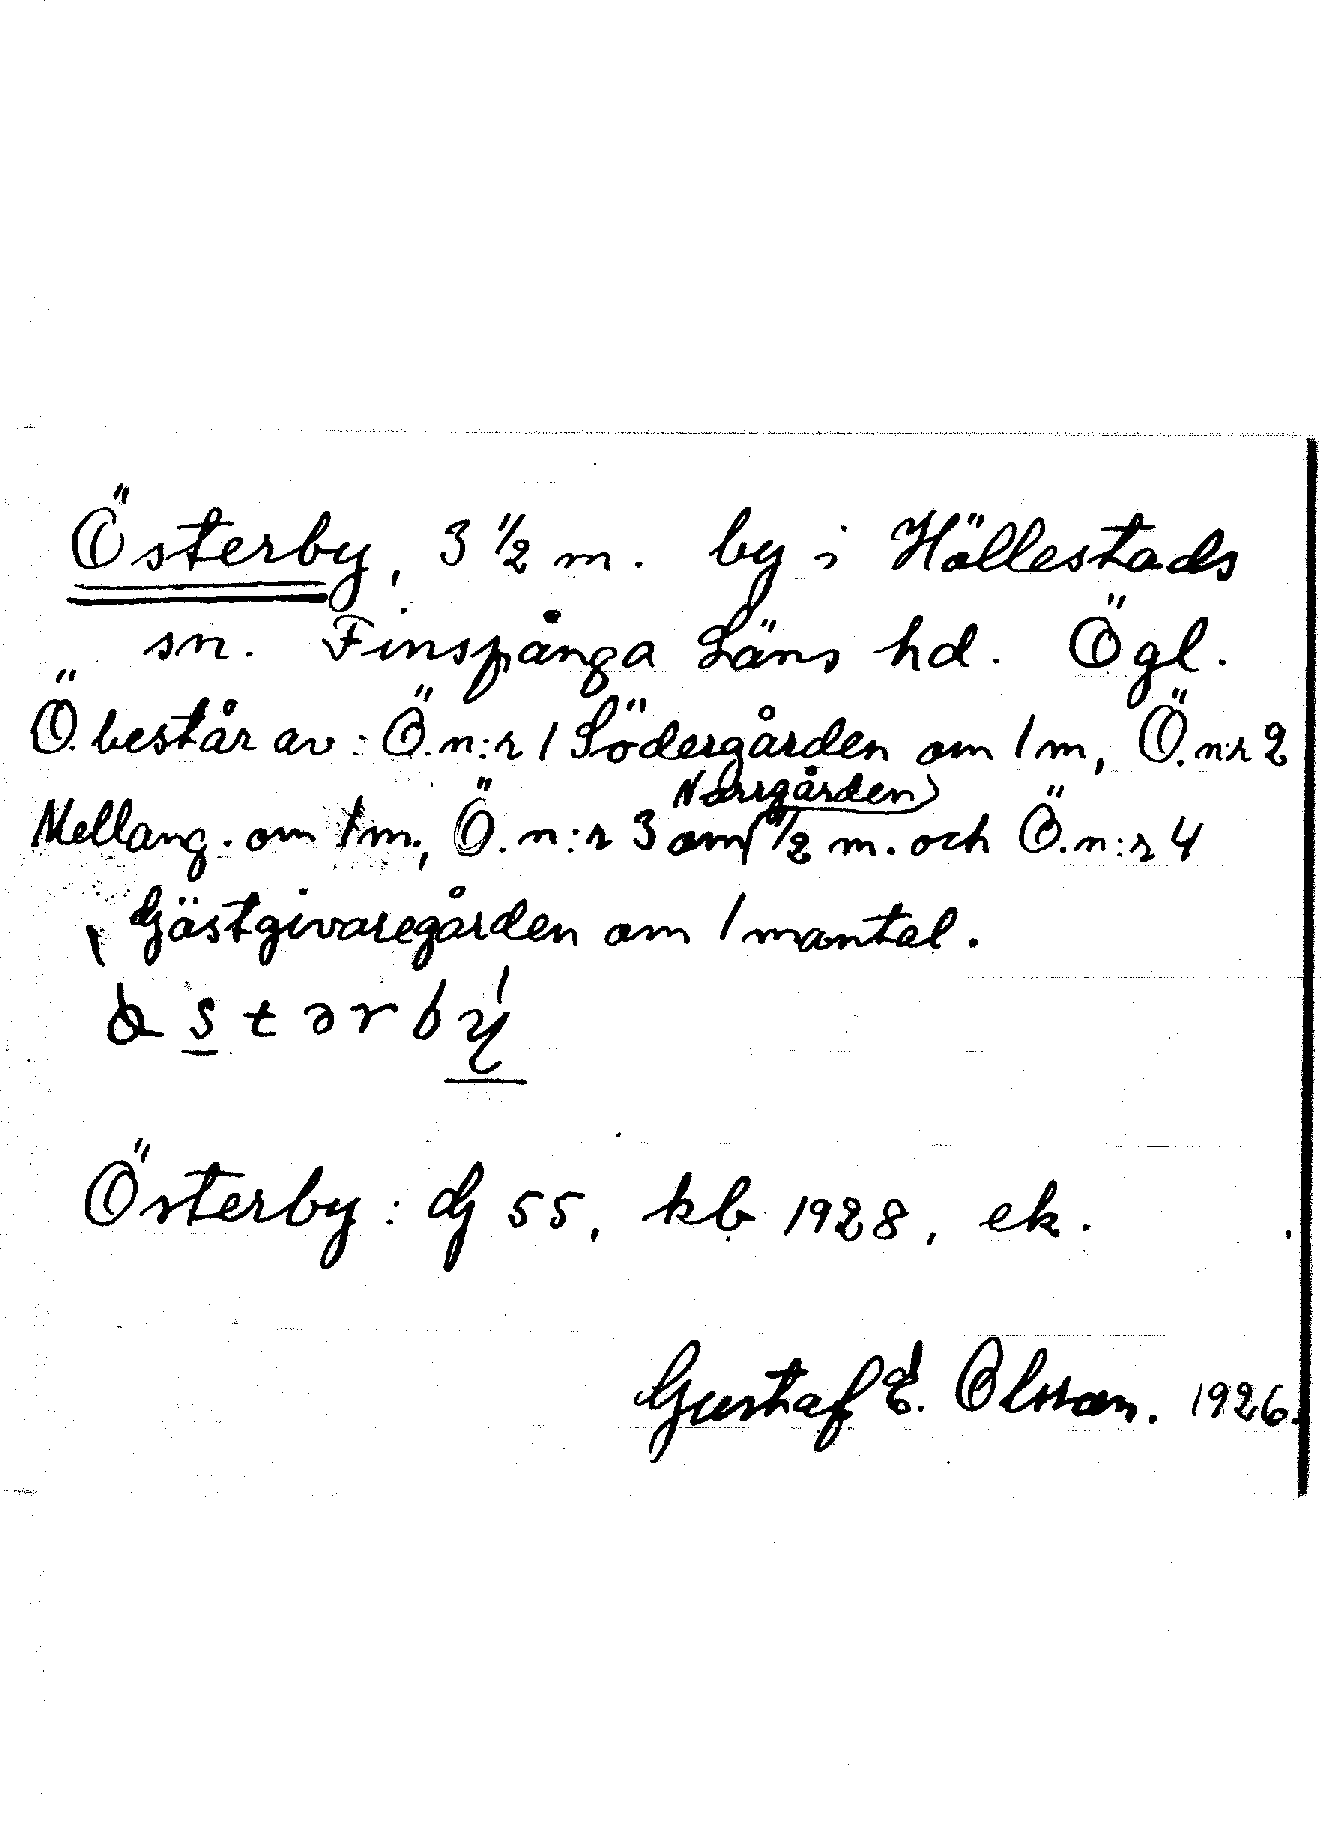 Österby, 3 1/2 m. by i Hällestads
sn. Finspånga Läns hd. Ögl.
Ö. består av: Ö. n:r 1 Södergården om 1 m, Ö. n:r 2
Norrgården
Mellang. om 1 m., Ö. n:r 3 om 1/2 m. och Ö. n:r 4
Gästgivaregården om 1 mantal.
Österby: dj 55, kb 1928, ek.
Gustaf E. Olsson. 1926.